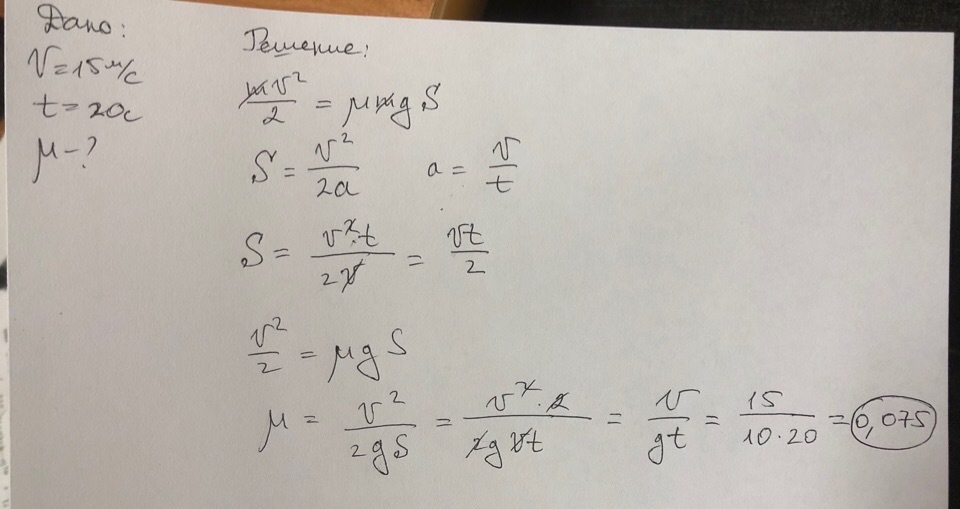 Дано:
V=15м/с
t=20с
μ-?
Решение:
mv²/2 = μmgS
S = v²/2a a = v/t
S = v²·t/2v = vt/2
v²/2 = μgS
μ = v²/2gS = v²·2/2gvt = v/gt = 15/10·20 = 0,075